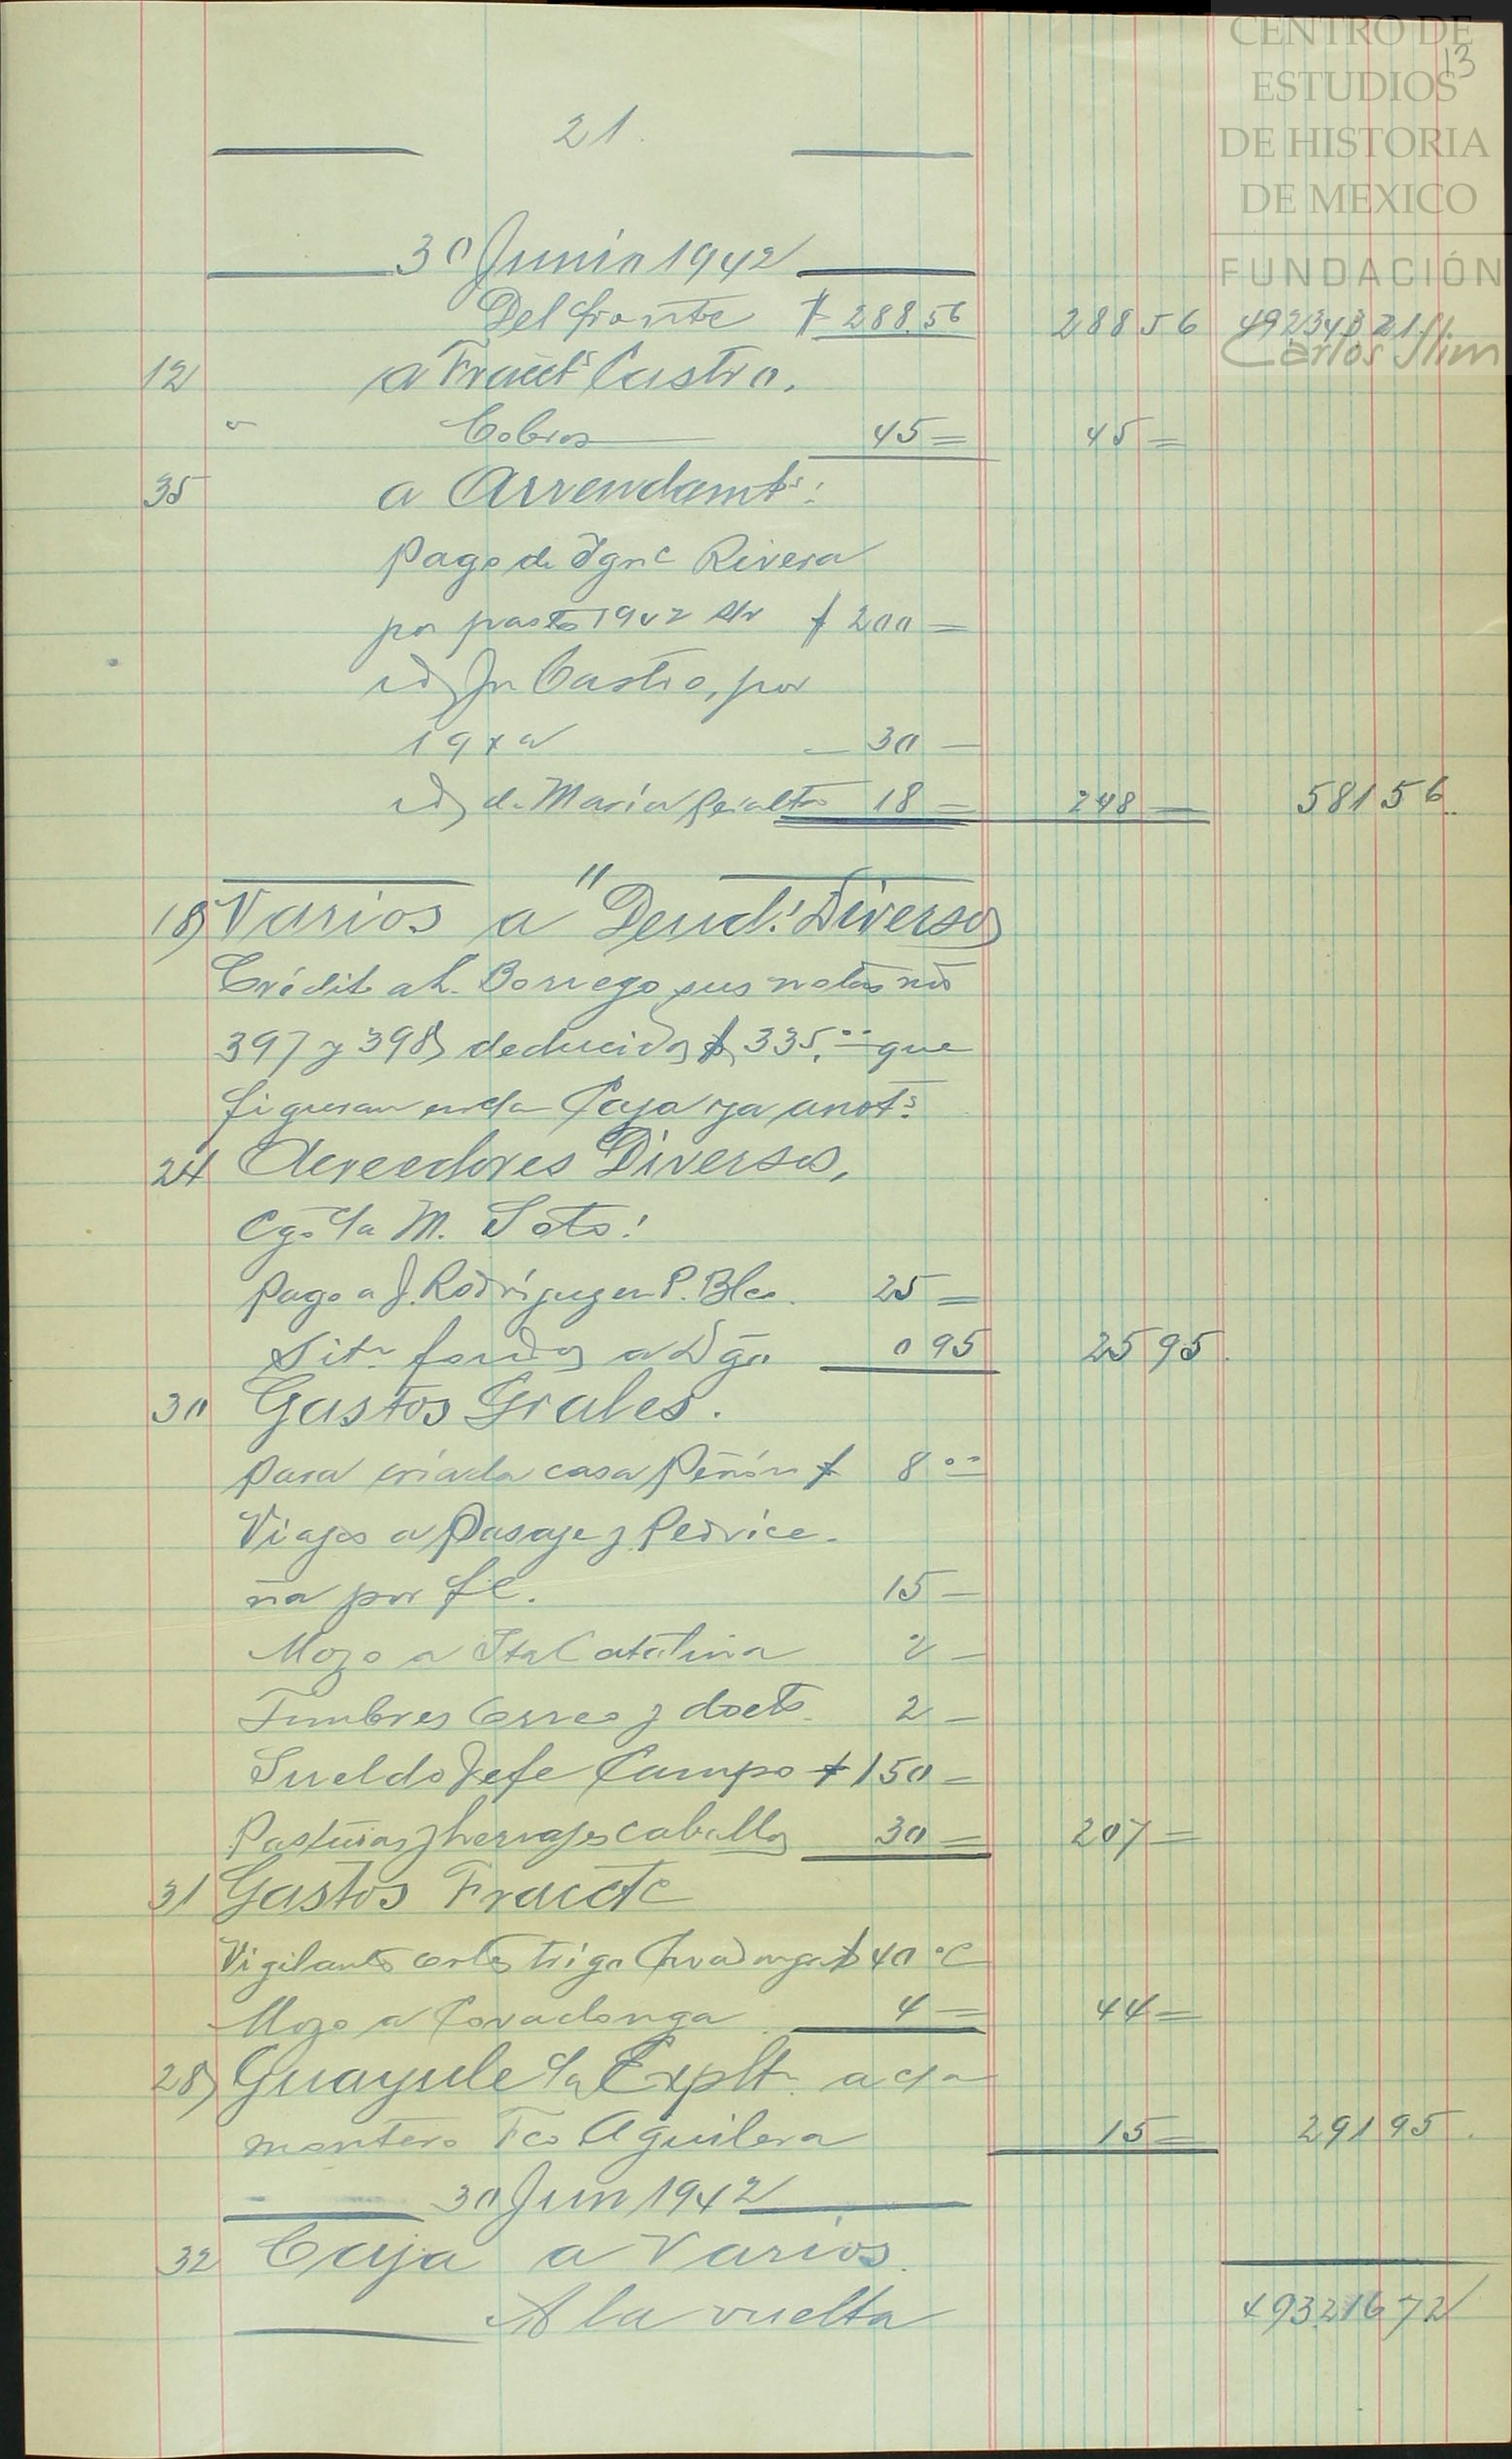 CENTRO DE
ESTUDIOS
DE HISTORIA
DE MEXICO
FUNDACIÓN
Carlos Slim
13
21.
30 Junio 1942
Del frente $ 288.56 288 56 492343 21
12 a Fracct.s Castro.
" Cobros 45= 45=
35 a Arrendamts:
Pago de Ignc Rivera
por pasto 1942 $ 200=
id Jn Castro, por
— 30 —
id de María Peralta 18= 248— 581 56
18 Varios a "Deud.s Diversos
Crédito a L. Borrego sus notas nos
397 y 398 deducidos $ 335.00 que
figuran en la Caja ya anot.s
24 Acreedores Diversos,
Cgo Cta M. Soto:
Pago a J. Rodríguez en P. Blco. 25=
Sitn fondos a Dgo 0 95 25 95
30 Gastos Grales.
Para criada casa Peñón $ 8 00
Viajes a Pasaje y Pedrice-
ña por fc. 15—
Mozo a Sta Catalina 2—
Timbres Correo y docts. 2—
Sueldo Jefe Campo $ 150—
Pasturas y herrajes caballos 30= 207=
31 Gastos Fracctc
Vigilante cortes trigo Covadonga $ 40 00
Mozo a Covadonga 4= 44=
28 Guayule Cta Explt. a
montero Fco Aguilera 15= 291 95
30 Jun 1942
32 Caja a Varios.
A la vuelta 493216 72